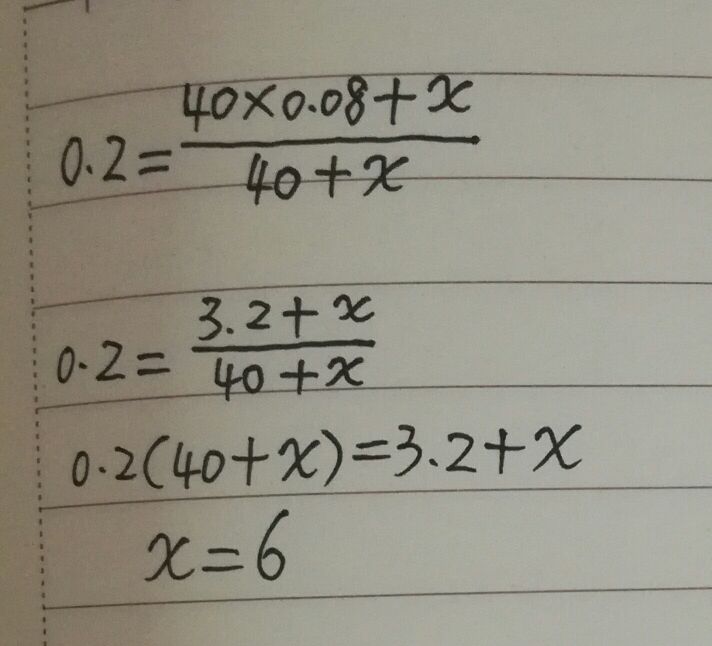 0.2 = (40×0.08+x)/(40+x)
0.2 = (3.2+x)/(40+x)
0.2(40+x)=3.2+x
x=6